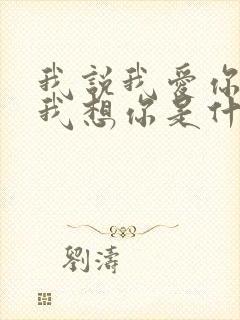 我說我愛你
我想你是什
劉濤